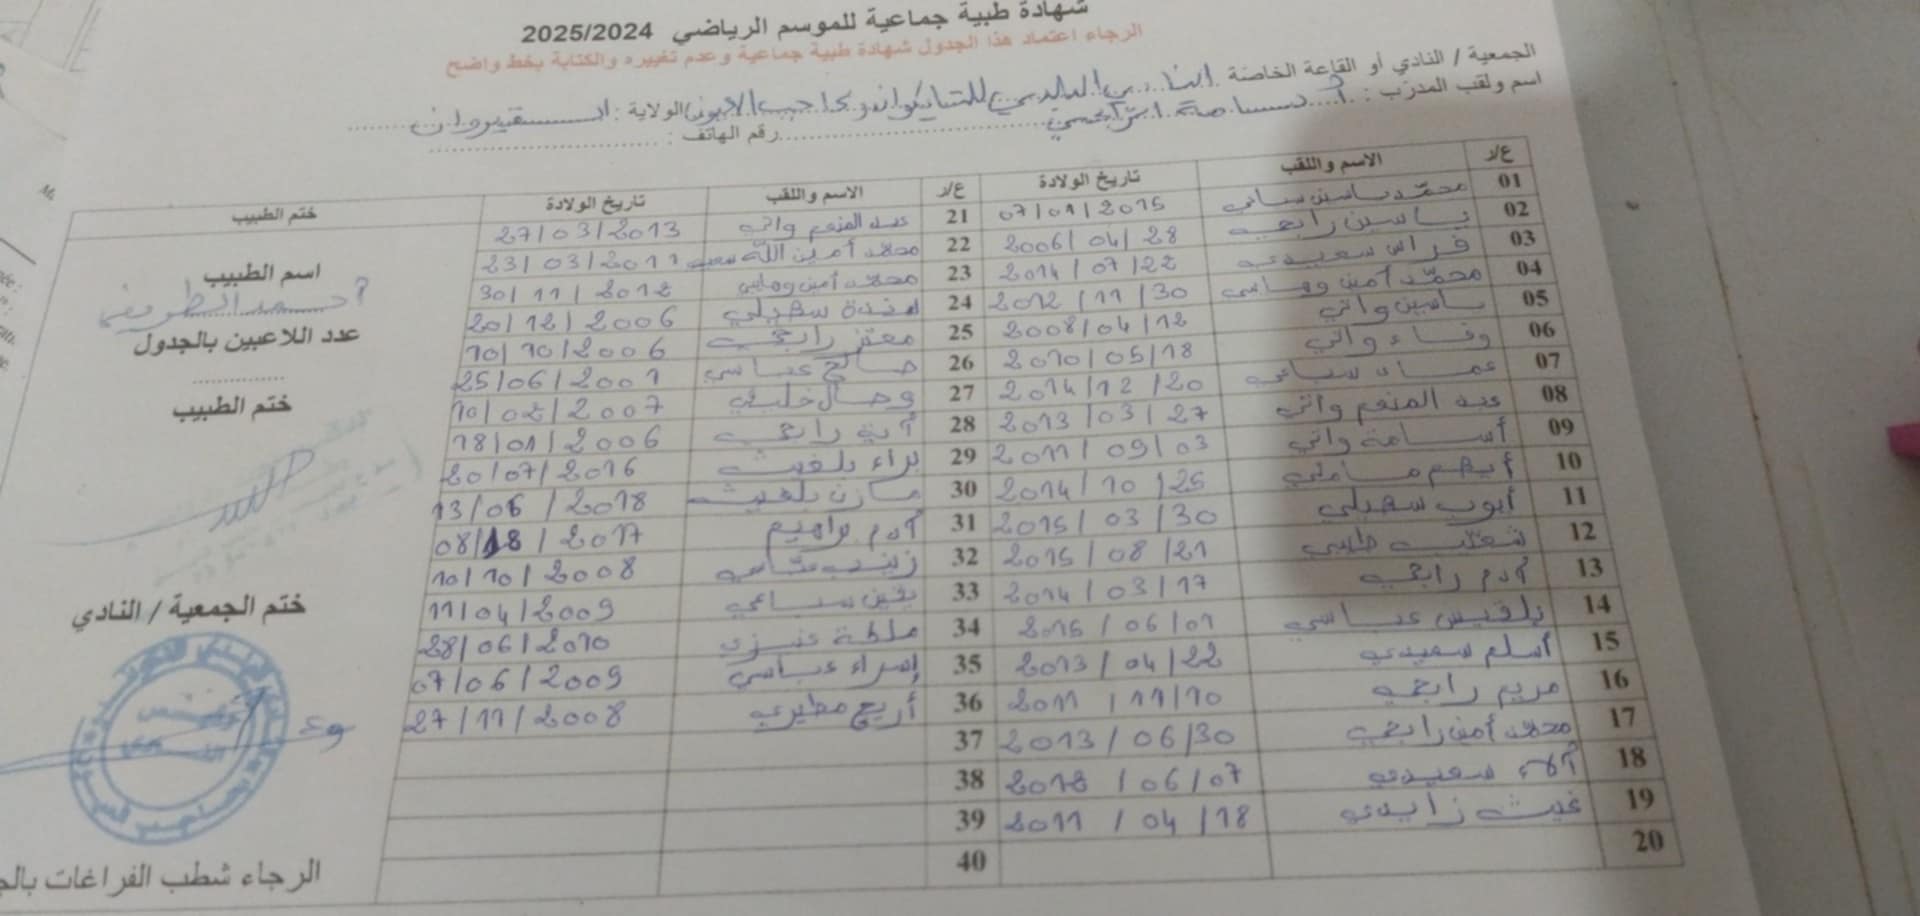 شهادة طبية جماعية للموسم الرياضي 2025/2024
الرجاء اعتماد هذا الجدول شهادة طبية جماعية وعدم تغييره والكتابة بخط واضح
الجمعية / النادي أو القاعة الخاصة النادي البلدي للتايكواندو بحاجب العيون الولاية : القيروان
اسم ولقب المدرّب : أسامة الرابحي رقم الهاتف :
ع/ر الاسم واللقب تاريخ الولادة
01 محمّد ياسين سباعي 07/01/2015
02 ياسين رابحي 2006/04/28
03 فراس سعيدي 2014/07/22
04 محمّد أمين وهابي 2012/11/30
05 ياسين واتي 2008/04/12
06 وفاء واتي 2010/05/18
07 عماد سباعي 2014/12/20
08 عبد المنعم واتي 2013/03/27
09 أسامة واتي 2011/09/03
10 أيهم 2014/10/25
11 أيوب سهيلي 2015/03/30
12 2015/08/21
13 آدم رابحي 2014/03/17
14 بلقيس عباسي 2015/06/01
15 أسلم سعيدي 2013/04/22
16 مريم رابحي 2011/11/10
17 محمد أمين رابحي 2013/06/30
18 آلاء سعيدي 2012/06/07
19 غيث زايدي 2011/04/18
20
ع/ر الاسم واللقب تاريخ الولادة
21 عبد المنعم واتي 27/03/2013
22 محمد أمين الله سعيد 23/03/2011
23 محمد أمين وهابي 30/11/2012
24 سهيلي 20/12/2006
25 معتز رابحي 10/10/2006
26 صالح عباسي 25/06/2001
27 وصال خليفي 10/02/2007
28 آية رابحي 18/01/2006
29 براء بلغيث 20/07/2016
30 مازن بلغيث 13/06/2018
31 آدم براهيم 08/18/2017
32 زينب عبّاسي 10/10/2008
33 يقين سباعي 11/04/2009
34 ملكة عنيزي 28/06/2010
35 إسراء عباسي 07/06/2009
36 أريج مطيري 27/11/2008
37
38
39
40
ختم الطبيب
اسم الطبيب
عدد اللاعبين بالجدول
ختم الطبيب
ختم الجمعية / النادي
الرجاء شطب الفراغات